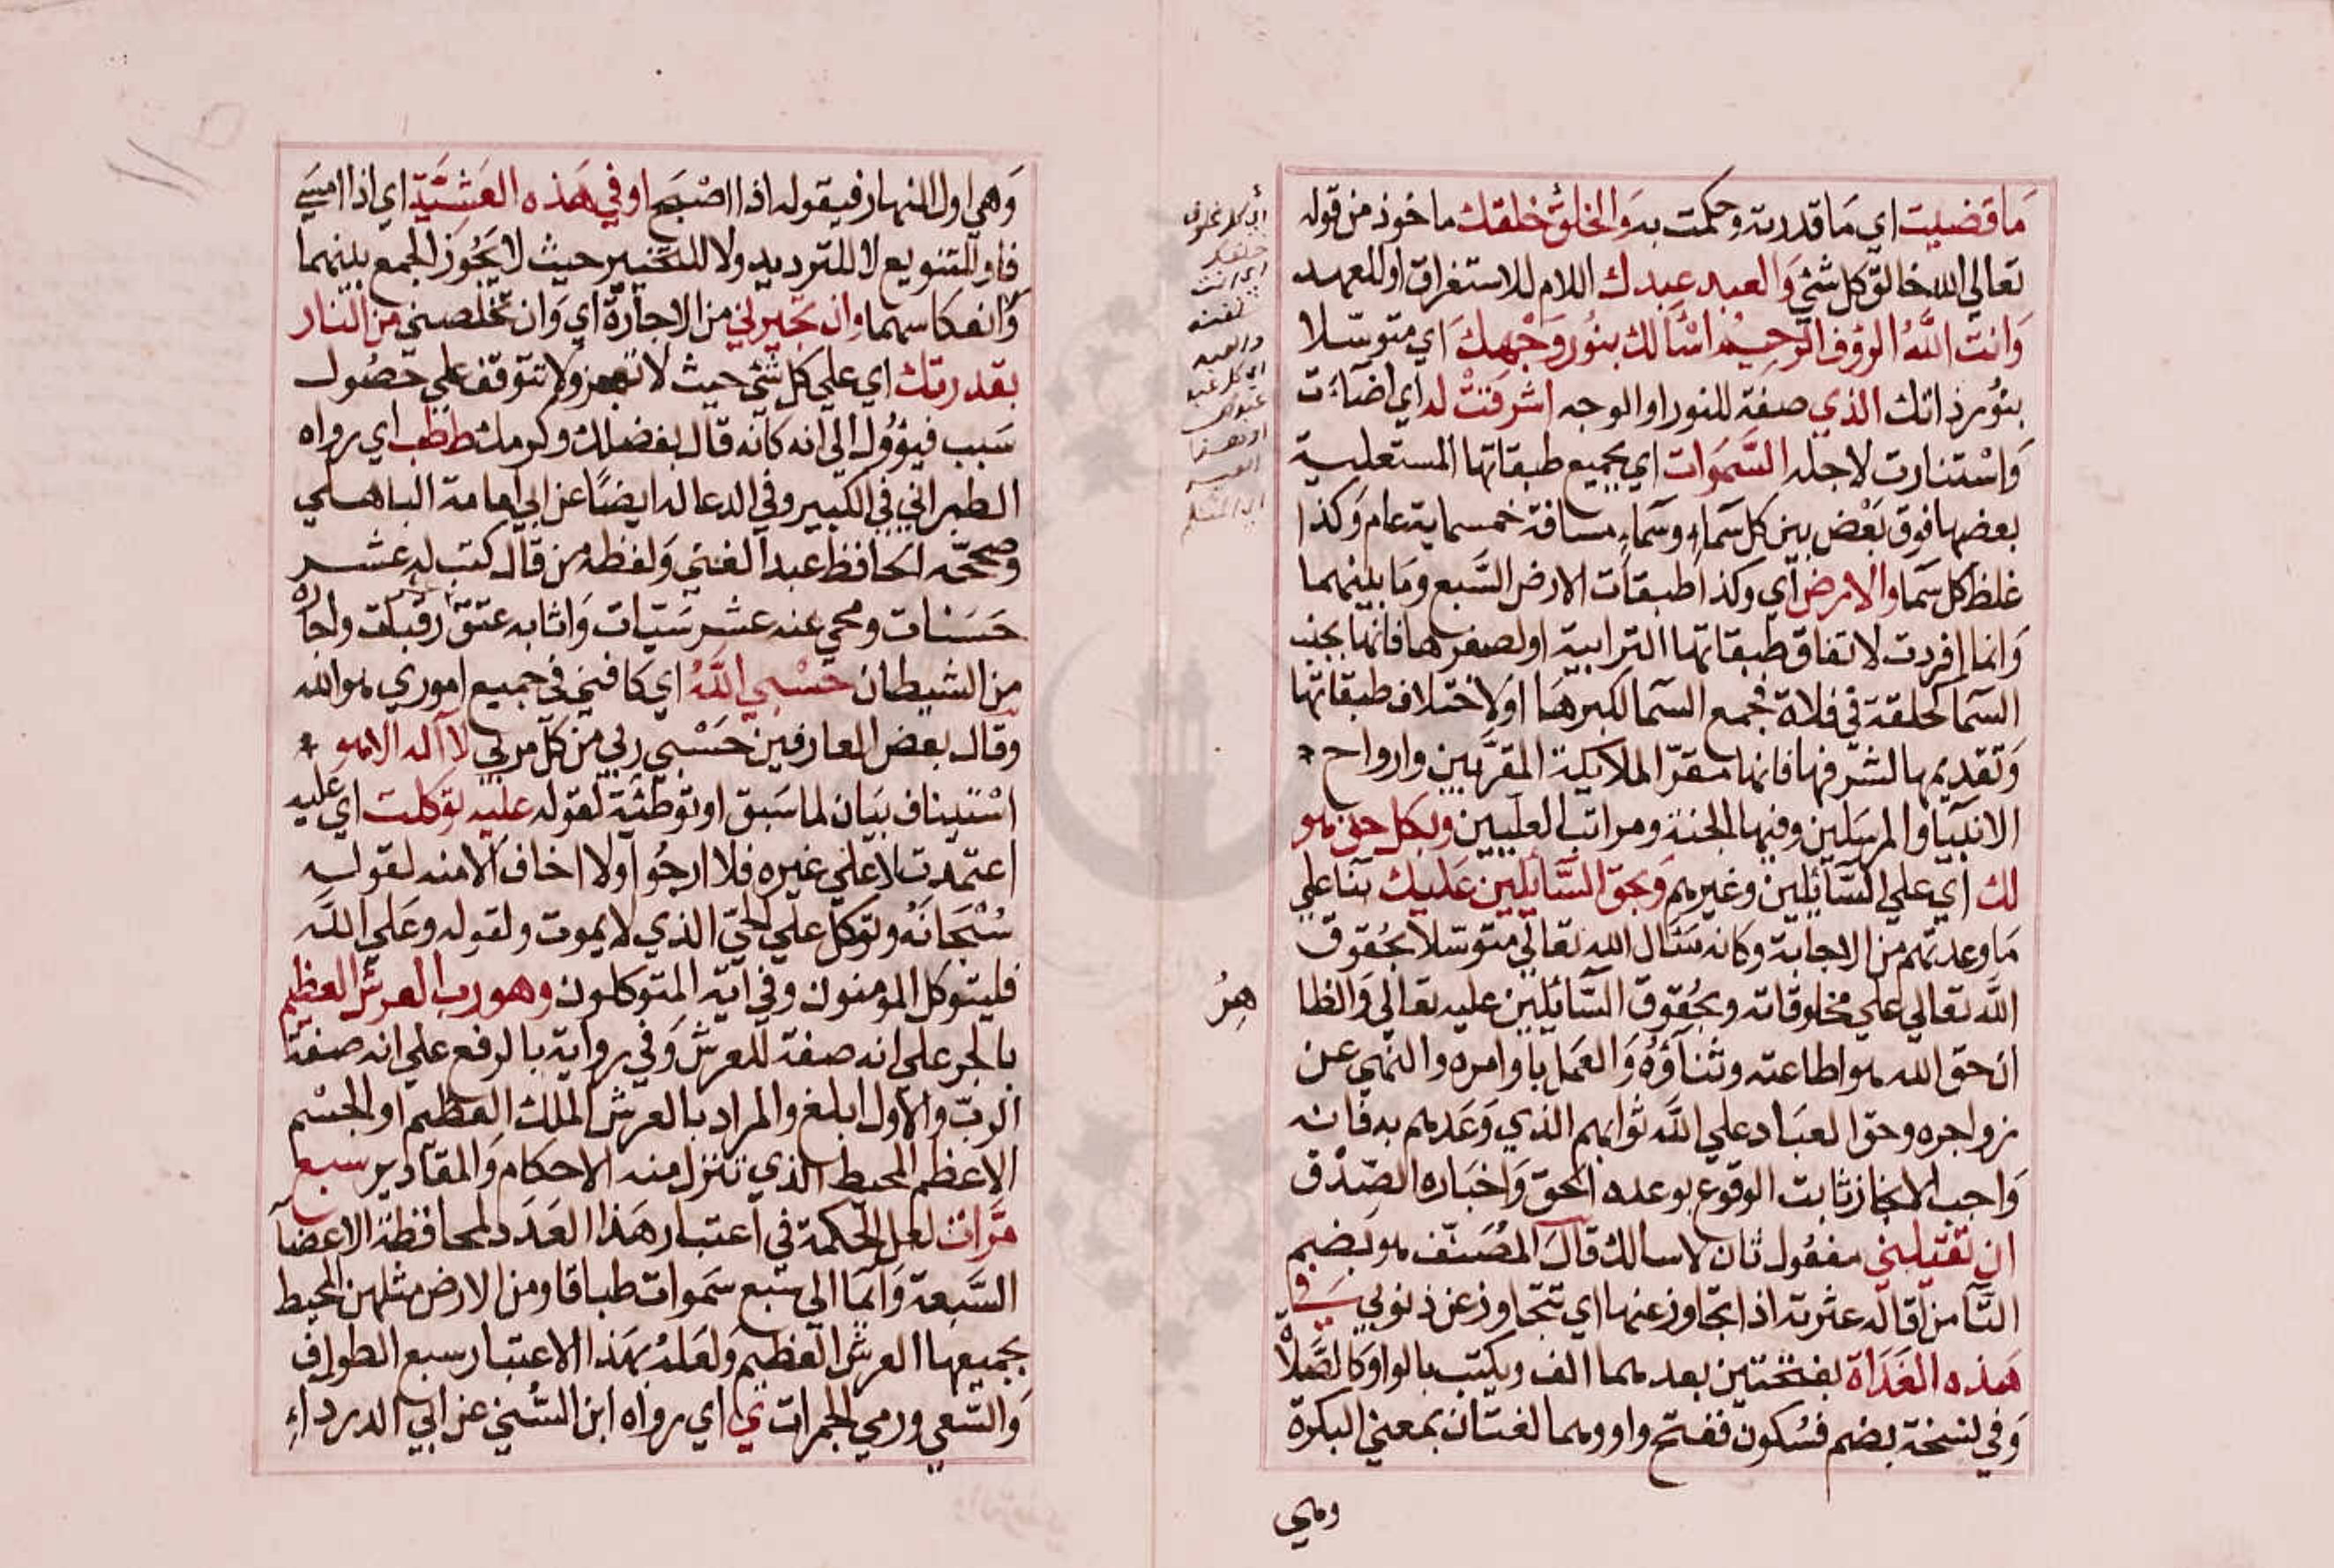 ما قضيت اي ما قدرته وحكمت به والخلق خلقك ماخوذ من قوله
تعالي الله خالق كل شئ والعبد عبدك اللام للاستغراق او للعهد
وانت الله الرؤف الرحيم اسألك بنور وجهك اي متوسلا
بنور ذاتك الذي صفة للنور او الوجه اشرقت له اي اضاءت
واستنارت لاجله السموات اي بجميع طبقاتها المستعلية
بعضها فوق بعض بين كل سماء وسماء مسافة خمسماية عام وكذا
غلظ كل سما والارض اي وكذا طبقات الارض السبع وما بينهما
وانما افردت لاتفاق طبقاتها الترابية او لصغرها فانها بجنب
السما كحلقة في فلاة فجمع السما لكبرها او لاختلاف طبقاتها
وتقديمها لشرفها فانها مقر الملايكة المقربين وارواح
الانبيا والمرسلين وفيها الجنة ومراتب العليين وبكل حق هو
لك اي علي السآئلين وغيرهم وبحق السآئلين عليك بنا علي
ما وعدتهم من الاجابة وكانه سئال الله تعالي متوسلا بحقوق
الله تعالي علي مخلوقاته وبحقوق السآئلين عليه تعالي والظا
هر
ان حق الله هو اطاعته وثناؤه والعمل باوامره والنهي عن
زواجره وحق العباد علي الله ثوابهم الذي وعدهم به فانه
واجب الانجاز ثابت الوقوع بوعده الحق واخباره الصدق
ان تقيلني مفعول ثان لاسالك قال المصنف هو بضم
التآ من اقاله عثرته اذا تجاوز عنها اي تتجاوز عن ذنوبي في
هذه الغداة بفتحتين بعدهما الف ويكتب بالواو كالصلاة
وفي نسخة بضم فسكون ففتح واو وهما لغتان بمعني البكرة
وهي
وهي اول النهار فيقوله اذا اصبح او في هذه العشية اي اذا امسي
فاو للتنويع لا للترديد ولا للتخيير حيث لا يجوز الجمع بينهما
وانعكاسهما وان تجيرني من الاجارة اي وان تخلصني من النار
بقدرتك اي علي كل شئ حيث لا تعجز ولا تتوقف علي حصول
سبب فيؤول الي انه كانه قال بفضلك وكرمك ط طب اي رواه
الطبراني في الكبير وفي الدعا له ايضا عن ابي امامة الباهلي
وصححه الحافظ عبد الغني ولفظه من قال كتب له عشر
حسنات ومحي عنه عشر سيات واثابه عتق رقبة واجاره
من الشيطان حسبي الله اي كافيني في جميع اموري هو الله
وقال بعض العارفين حسبي ربي من كل مربي لا اله الا هو
استيناف بيان لما سبق او توطئة لقوله عليه توكلت اي عليه
اعتمدت لا علي غيره فلا ارجو ولا اخاف الا منه لقوله
سبحانه وتوكل علي الحي الذي لا يموت ولقوله وعلي الله
فليتوكل المومنون وفي اية المتوكلون وهو رب العرش العظيم
بالجر علي انه صفة للعرش وفي رواية بالرفع علي انه صفة
الرب والاول ابلغ والمراد بالعرش الملك العظيم او الجسم
الاعظم المحيط الذي تنزل منه الاحكام والمقادير سبع
مرات لعل الحكمة في اعتبار هذا العدد لمحافظة الاعضآ
السبعة وايما الي سبع سموات طباقا ومن الارض مثلهن المحيط
بجميعها العرش العظيم ولعله بهذا الاعتبار سبع الطواف
والسعي ورمي الجمرات ي اي رواه ابن السني عن ابي الدرداء